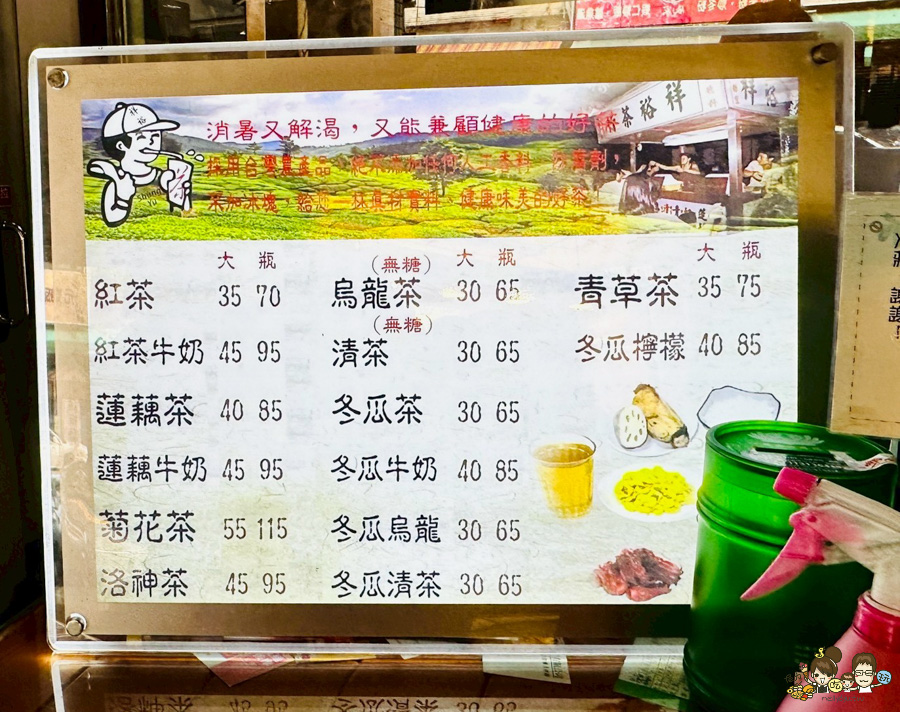 消暑又解渴，又能兼顧健康的好
採用台灣農產品，絕不添加任何人工香料、防腐劑，
不加冰塊，給您一杯真材實料、健康味美的好茶
祥裕茶
大 瓶
紅茶 35 70
紅茶牛奶 45 95
蓮藕茶 40 85
蓮藕牛奶 45 95
菊花茶 55 115
洛神茶 45 95
(無糖) 大 瓶
烏龍茶 30 65
(無糖)
清茶 30 65
冬瓜茶 30 65
冬瓜牛奶 40 85
冬瓜烏龍 30 65
冬瓜清茶 30 65
大 瓶
青草茶 35 75
冬瓜檸檬 40 85